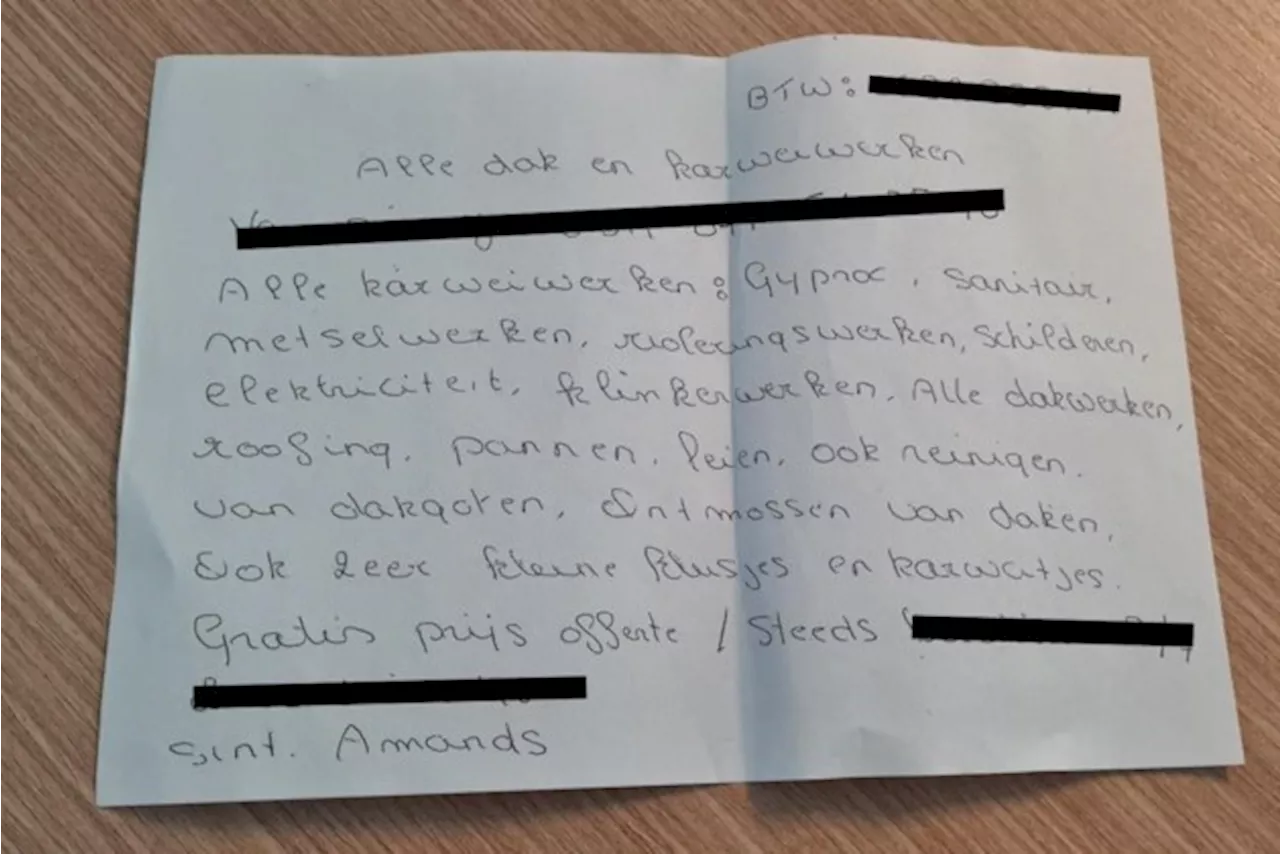 BTW:
Alle dak en karweiwerken
Alle karweiwerken: Gyproc, sanitair,
metselwerken, rioleringswerken, schilderen,
elektriciteit, klinkerwerken, Alle dakwerken,
roofing, pannen, leien, ook reinigen.
van dakgoten, Ontmossen van daken,
Ook zeer kleine klusjes en karwatjes.
Gratis prijs offerte / Steeds
Sint. Amands